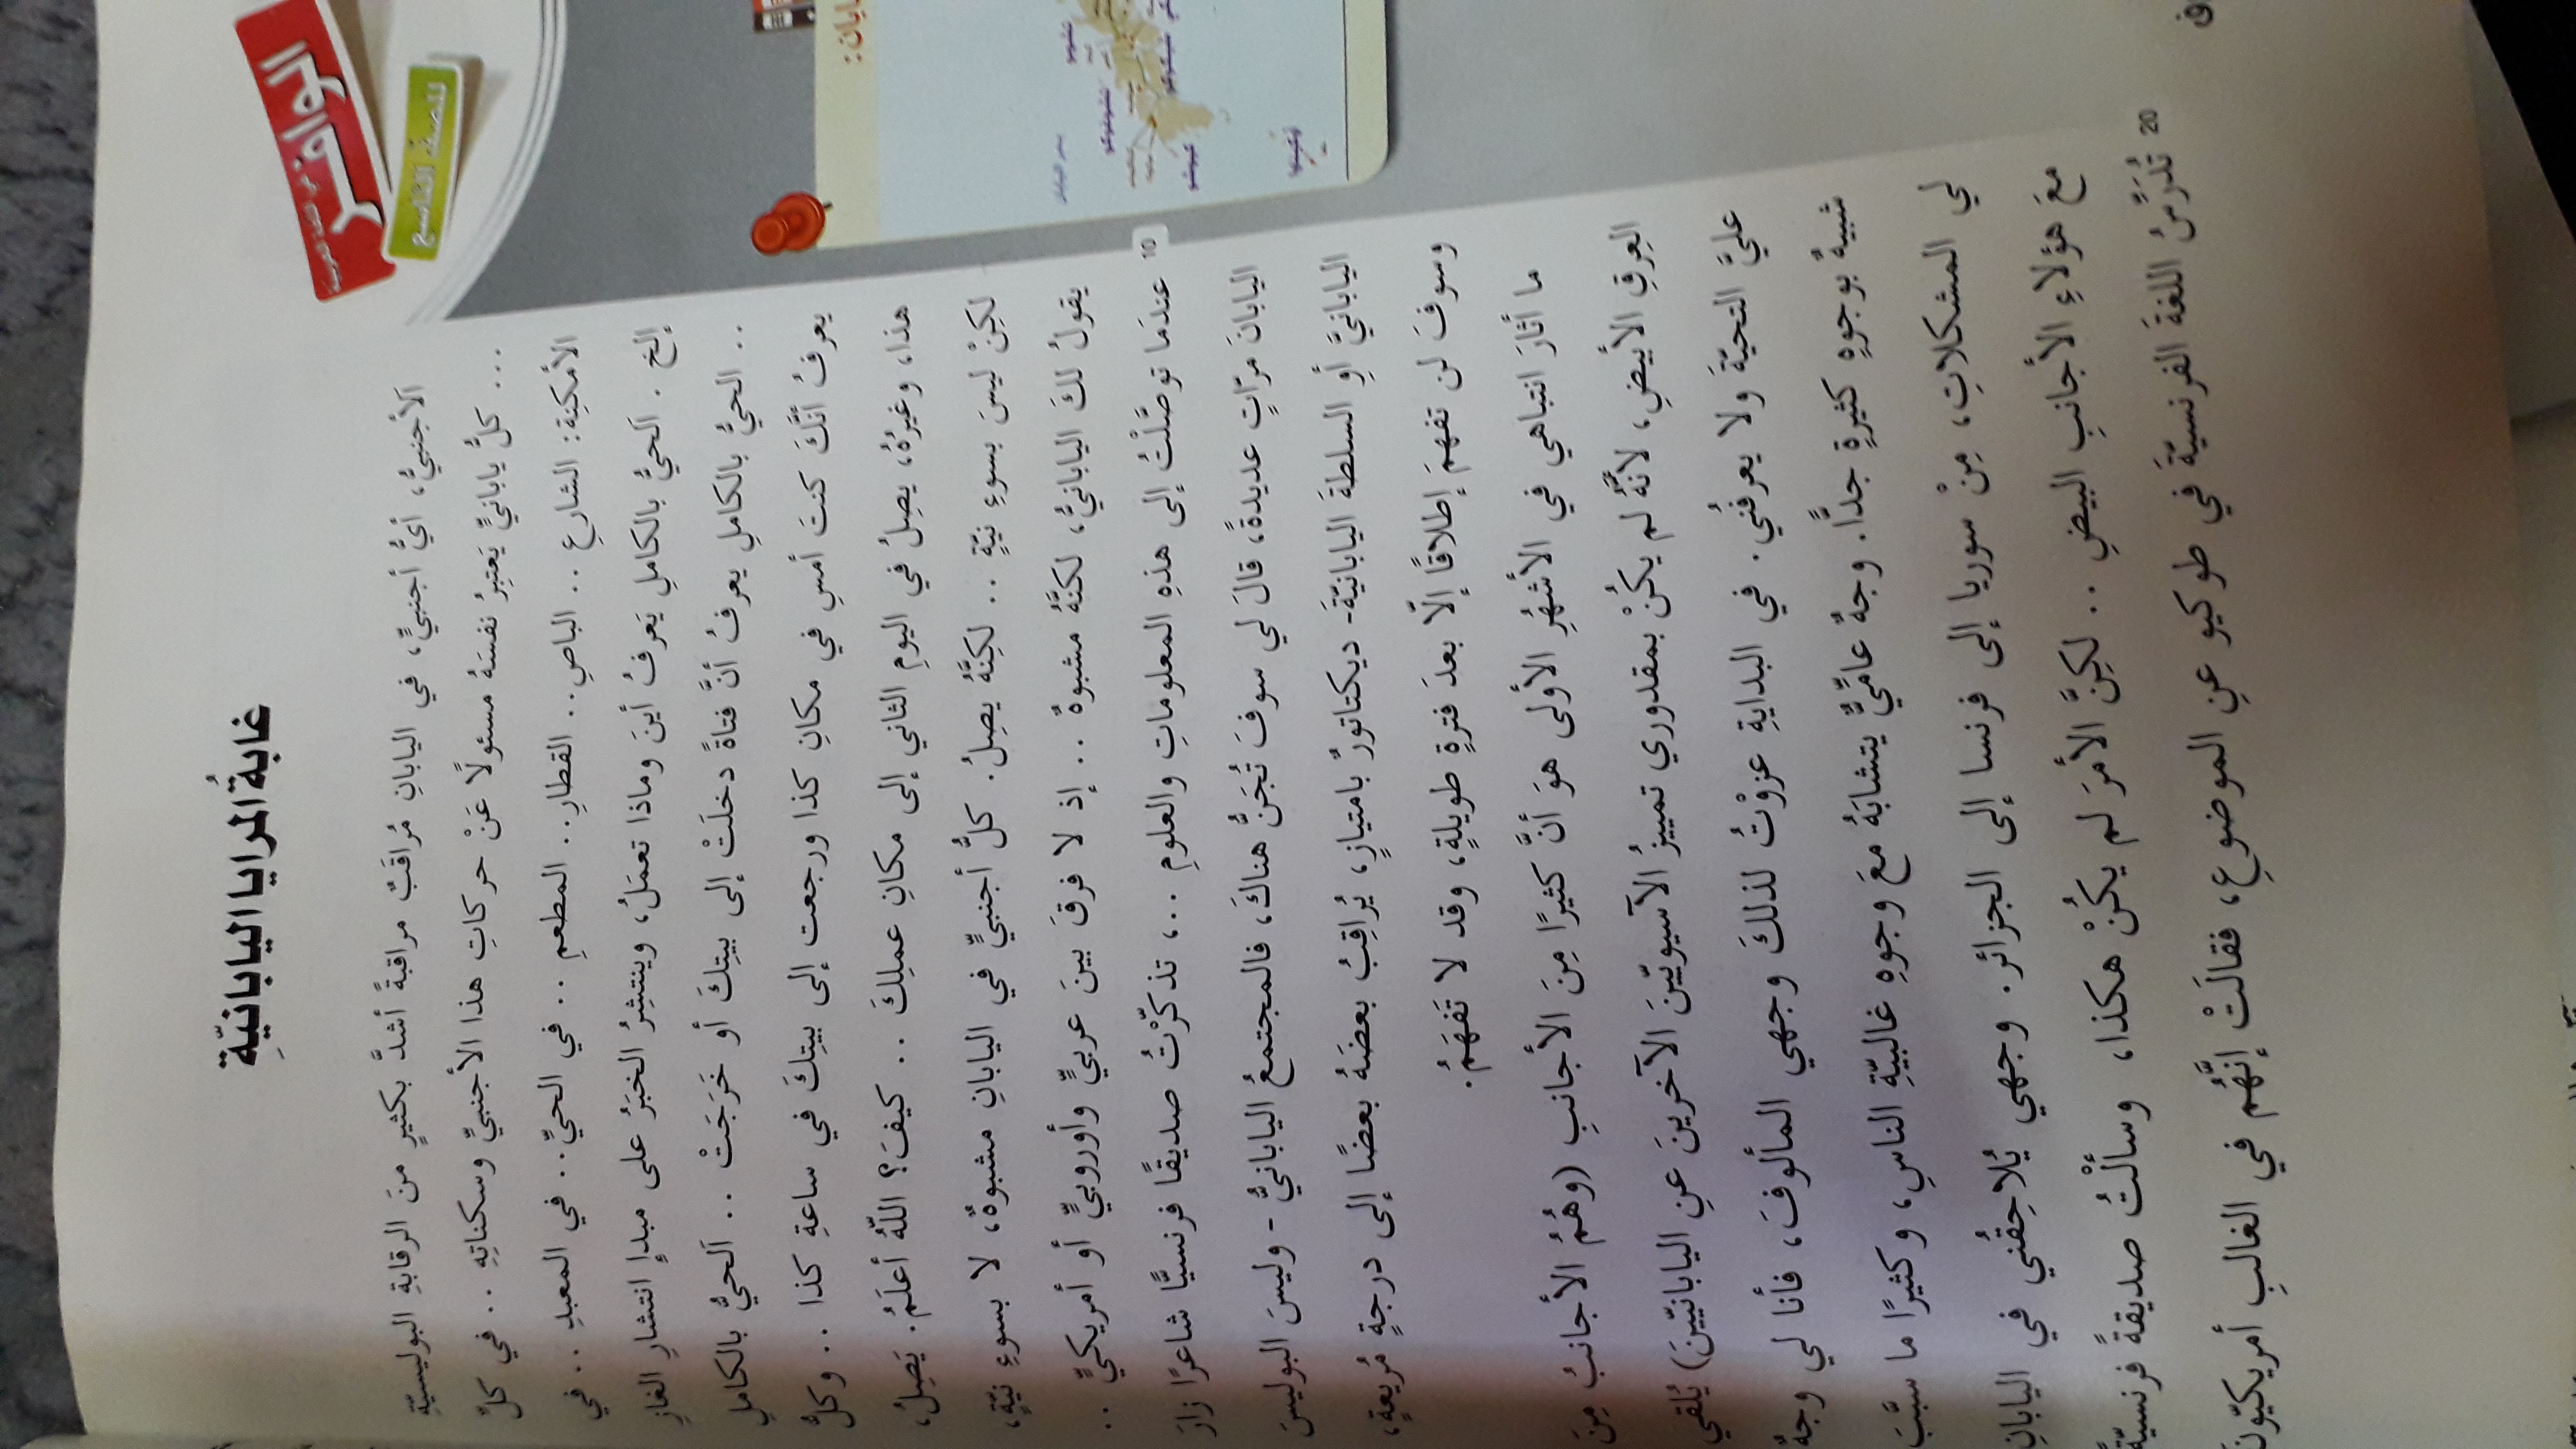 الوافر
للصف التاسع
غابةُ المرايا اليابانيّةِ
اَلأجنبيُّ، أيُّ أجنبيٍّ، في اليابانِ مُراقَبٌ مراقبةً أشدَّ بكثيرٍ منَ الرقابةِ البوليسيّةِ
... كلُّ يابانيٍّ يَعتبِرُ نفسَهُ مسئولًا عَنْ حركاتِ هذا الأجنبيِّ وسكناتِهِ .. في كلِّ
الأمكِنةِ: الشارعِ .. الباصِ.. القطارِ.. المطعمِ .. في الحيِّ.. في المعبدِ .. في
إلخ . اَلحيُّ بالكاملِ يَعرفُ أينَ وماذا تعمَلُ، وينتشِرُ الخبَرُ على مبدإ انتشارِ الغازِ
.. الحيُّ بالكاملِ يعرفُ أنَّ فتاةً دخلَتْ إلى بيتِكَ أو خَرَجَتْ .. اَلحيُّ بالكاملِ
يعرفُ أنَّكَ كنتَ أمسِ في مكانِ كذا ورجعت إلى بيتِكَ في ساعةِ كذا .. وكلُّ
هذا، وغيرُهُ، يصِلُ في اليومِ الثاني إلى مكانِ عملِكَ .. كيفَ؟ اللّهُ أعلَمُ. يَصِلُ،
لكِنْ ليسَ بسوءِ نيّةٍ .. لكِنَّهُ يصِلُ. كلُّ أجنبيٍّ في اليابانِ مشبوهٌ، لا بسوءِ نيّةٍ،
يقولُ لكَ اليابانيُّ، لكنَّهُ مشبوهٌ .. إذ لا فرقَ بينَ عربيٍّ وأوروبيٍّ أو أمريكيٍّ ..
10 عندَما توصَّلْتُ إلى هذهِ المعلوماتِ والعلومِ ...، تذكّرْتُ صديقًا فرنسيًّا شاعرًا زارَ
اليابانَ مرّاتٍ عديدةً، قالَ لي سوفَ تُجَنُّ هناكَ، فالمجتمعُ اليابانيُّ - وليسَ البوليسَ
اليابانيَّ أوِ السلطةَ اليابانيّةَ- ديكتاتورٌ بامتيازٍ، يُراقِبُ بعضَهُ بعضًا إلى درجةٍ مُريعةٍ،
وسوفَ لن تفهمَ إطلاقًا إلّا بعدَ فترةٍ طويلةٍ، وقد لا تَفهَمُ.
ما أثارَ انتباهي في الأشهُرِ الأولى هوَ أنَّ كثيرًا مِنَ الأجانبِ (وهُمُ الأجانبُ مِنَ
العِرقِ الأبيضِ، لأنَّهُ لم يكُنْ بمقدوري تمييزُ الآسيويّينَ الآخرينَ عنِ اليابانيّينَ) يُلقي
عليَّ التحيّةَ ولا يعرفُني. في البدايةِ عزوْتُ لذلكَ وجهي المألوفَ، فأنا لي وجهٌ
شبيهٌ بوجوهٍ كثيرةٍ جدًّا. وجهٌ عامّيٌّ يتشابَهُ معَ وجوهِ غالبيّةِ الناسِ، وكثيرًا ما سبَّبَ
لي المشكلاتِ، مِنْ سوريا إلى فرنسا إلى الجزائر. وجهي يُلاحِقُني في اليابانِ
معَ هؤلاءِ الأجانبِ البيضِ .. لكِنَّ الأمرَ لم يكُنْ هكذا، وسألْتُ صديقةً فرنسيّةً
20 تُدَرِّسُ اللغةَ الفرنسيّةَ في طوكيو عنِ الموضوعِ، فقالَتْ إنَّهُم في الغالبِ أمريكيّونَ